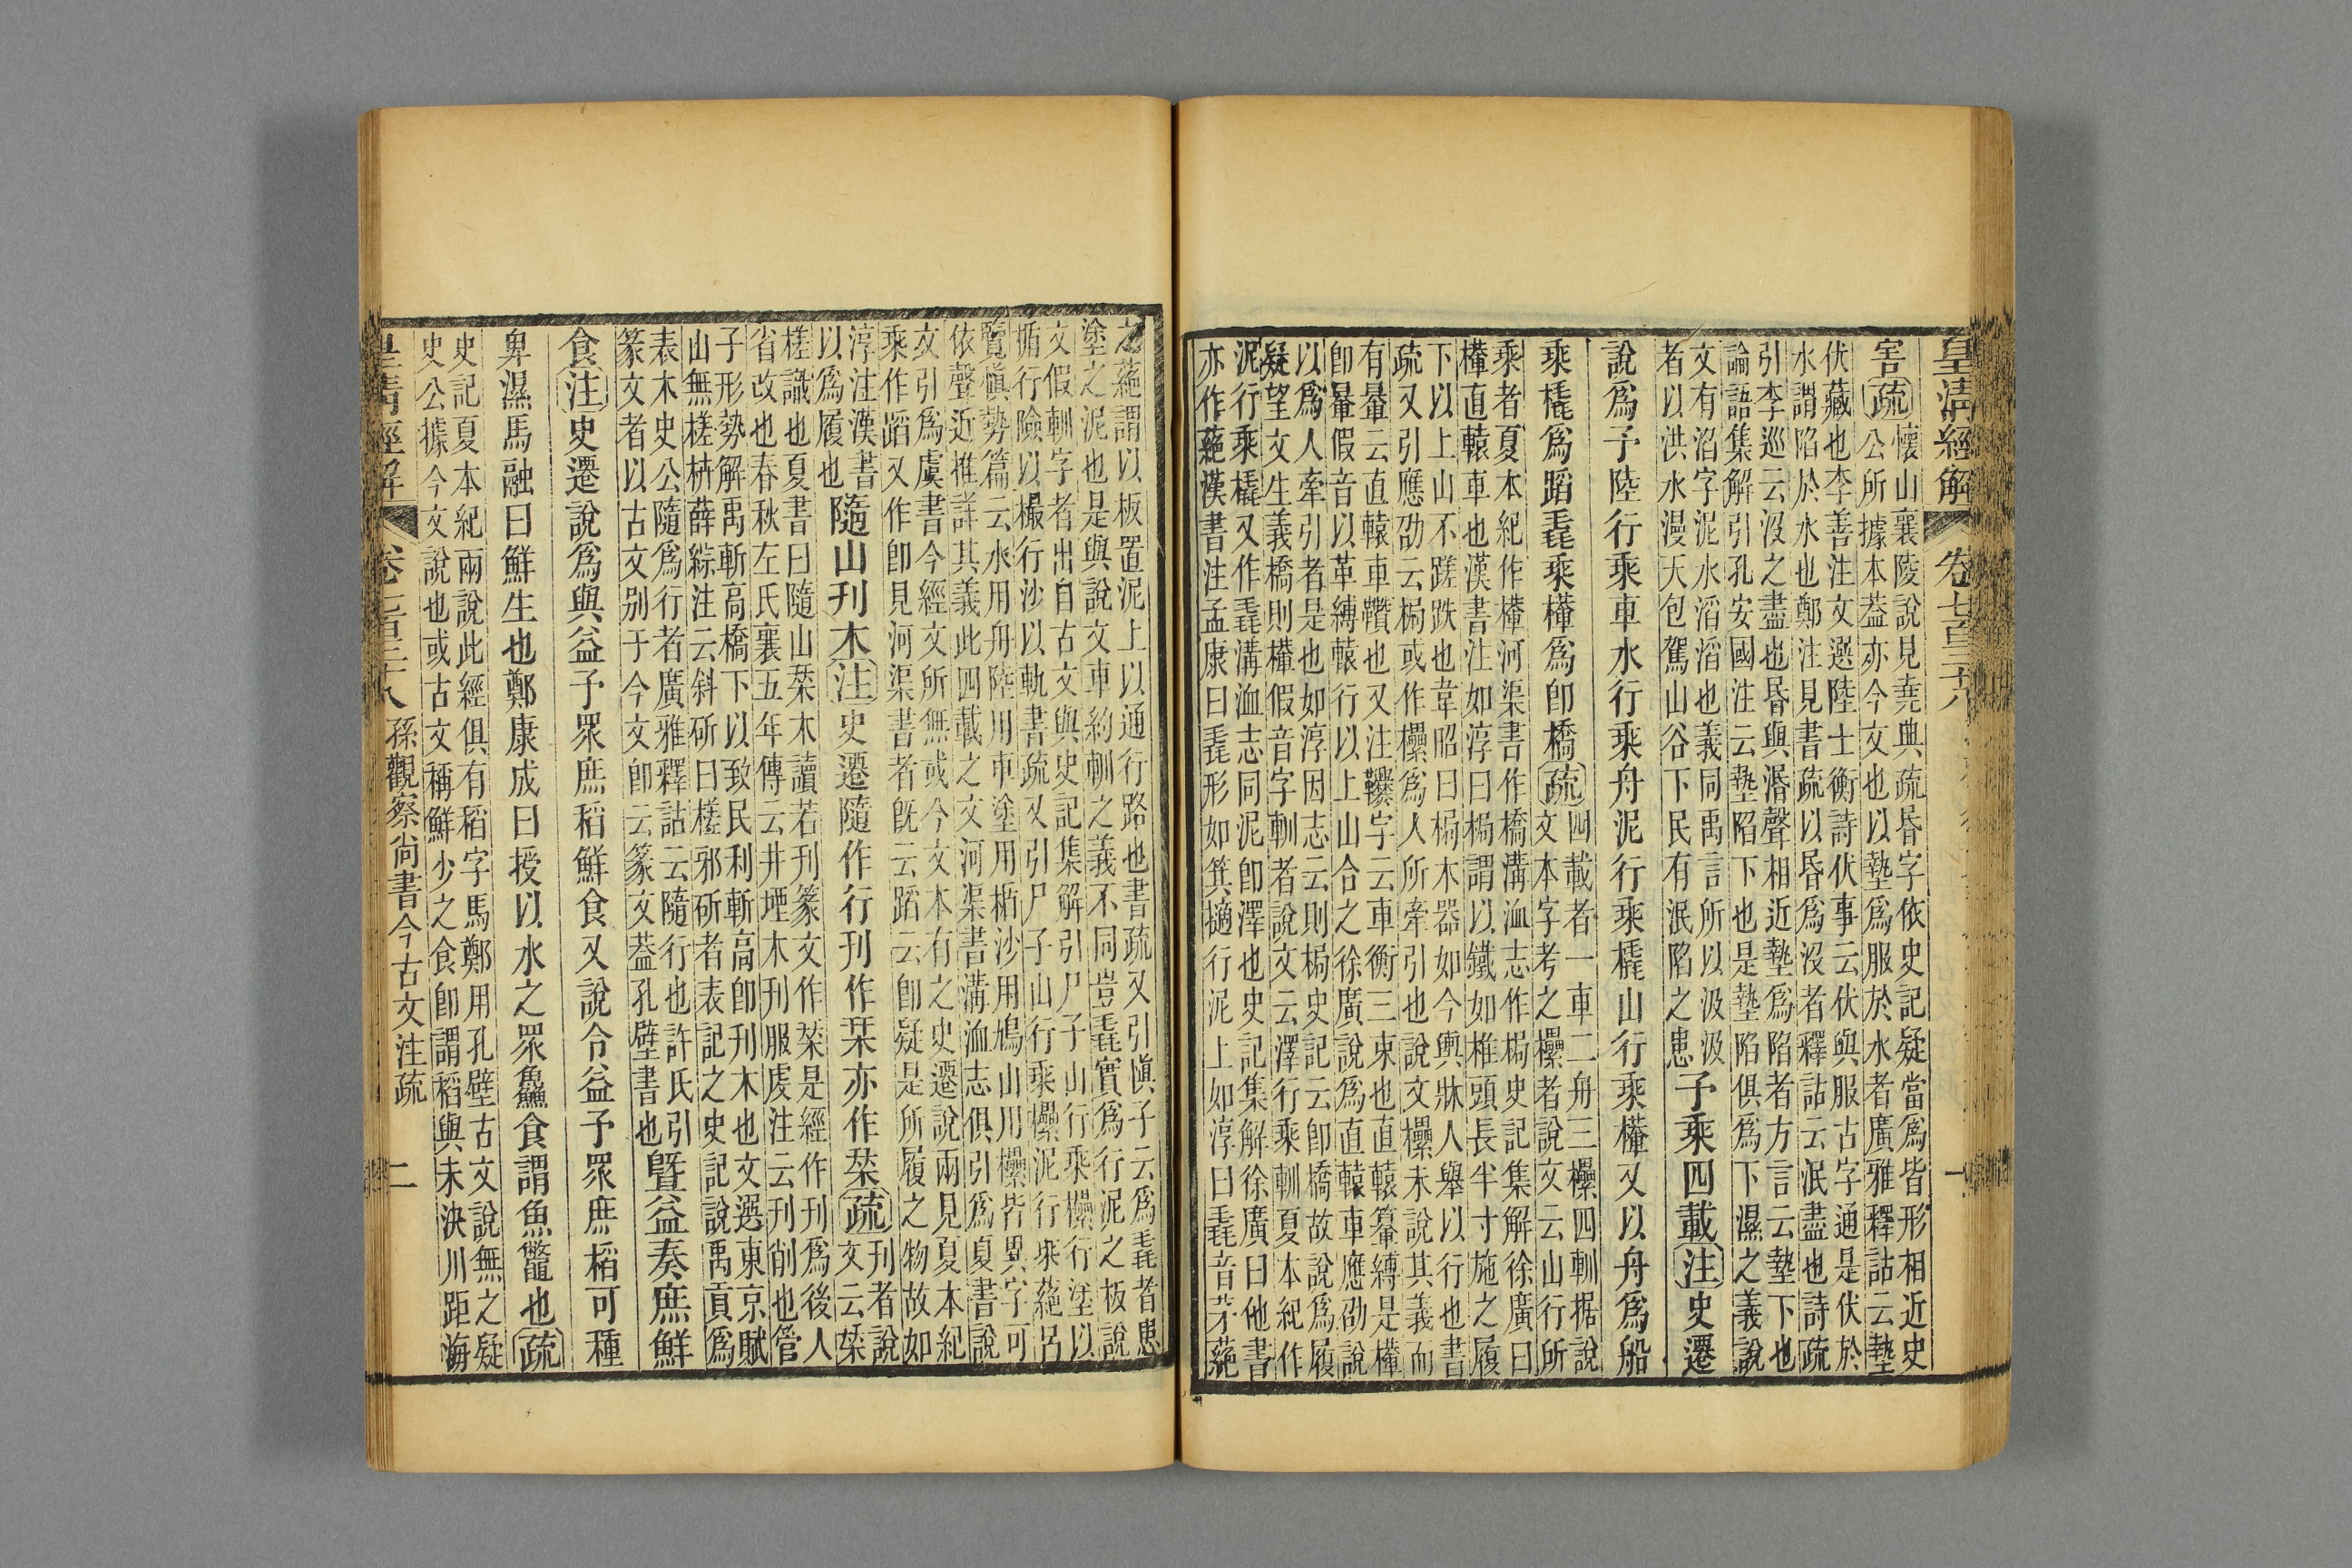 皇清經解 卷七百三十八 一
害疏
懷山襄陵說見堯典疏昬字依史記疑當爲皆形相近史
公所據本葢亦今文也以墊爲服於水者廣雅釋詁云墊
伏藏也李善注文選陸士衡詩伏事云伏與服古字通是伏於
水謂陷於水也鄭注見書疏以昬爲沒者釋詁云泯盡也詩疏
引李巡云沒之盡也昬與湣聲相近墊爲陷者方言云墊下也
論語集解引孔安國注云墊陷下也是墊陷俱爲下濕之義說
文有滔字泥水滔滔也義同禹言所以汲汲
者以洪水漫天包駕山谷下民有泯陷之患
予乘四載注史遷
說爲予陸行乘車水行乘舟泥行乘橇山行乘權又以舟爲船
乘橇爲蹈毳乘權爲卽橋疏
四載者一車二舟三欙四輴据說
文本字考之欙者說文云山行所
乘者夏本紀作權河渠書作橋溝洫志作梮史記集解徐廣曰
權直轅車也漢書注如淳曰梮謂以鐵如椎頭長半寸施之履
下以上山不蹉跌也韋昭曰梮木器如今輿牀人舉以行也書
疏又引應劭云梮或作欙爲人所牽引也說文欙未說其義而
有暈云直轅車䡽也又注䡽字云車衡三束也直轅暈縛是權
卽暈假音以革縛轅行以上山合之徐廣說爲直轅車應劭說
以爲人牽引者是也如淳因志云則梮史記云卽橋故說爲履
疑望文生義橋則權假音字輴者說文云澤行乘輴夏本紀作
泥行乘橇又作毳溝洫志同泥卽澤也史記集解徐廣曰他書
亦作蕝漢書注孟康曰毳形如箕擿行泥上如淳曰毳音茅蕝
之蕝謂以板置泥上以通行路也書疏又引愼子云爲毳者患
塗之泥也是與說文車約輴之義不同豈毳實爲行泥之板說
文假輴字者出自古文與史記集解引尸子山行乘欙行塗以
楯行險以撮行沙以軌書疏又引尸子山行乘欙泥行乘蕝呂
覽愼勢篇云水用舟陸用車塗用楯沙用鳩山用欙皆異字可
依聲近推詳其義此四載之文河渠書溝洫志俱引爲夏書說
文引爲虞書今經文所無或今文本有之史遷說兩見夏本紀
乘作蹈又作卽見河渠書者旣云蹈云卽疑是所履之物故如
淳注漢書
以爲履也
隨山刊木注史遷隨作行刊作栞亦作栞疏
刊者說
文云栞
槎識也夏書曰隨山栞木讀若刊篆文作栞是經作刊爲後人
省改也春秋左氏襄五年傳云井堙木刊服虔注云刊削也管
子形勢解禹斬高橋下以致民利斬高卽刊木也文選東京賦
山無槎枿薛綜注云斜斫曰槎邪斫者表記之史記說禹貢爲
表木史公隨爲行者廣雅釋詁云隨行也許氏引
篆文者以古文別于今文卽云篆文葢孔壁書也
曁益奏庶鮮
食注史遷說爲與益予眾庶稻鮮食又說令益予眾庶稻可種
卑濕馬融曰鮮生也鄭康成曰授以水之眾鱻食謂魚鼈也疏
史記夏本紀兩說此經俱有稻字馬鄭用孔壁古文說無之疑
史公據今文說也或古文稱鮮少之食卽謂稻與未決川距海
皇清經解 卷七百三十八 孫觀察尚書今古文注疏 二